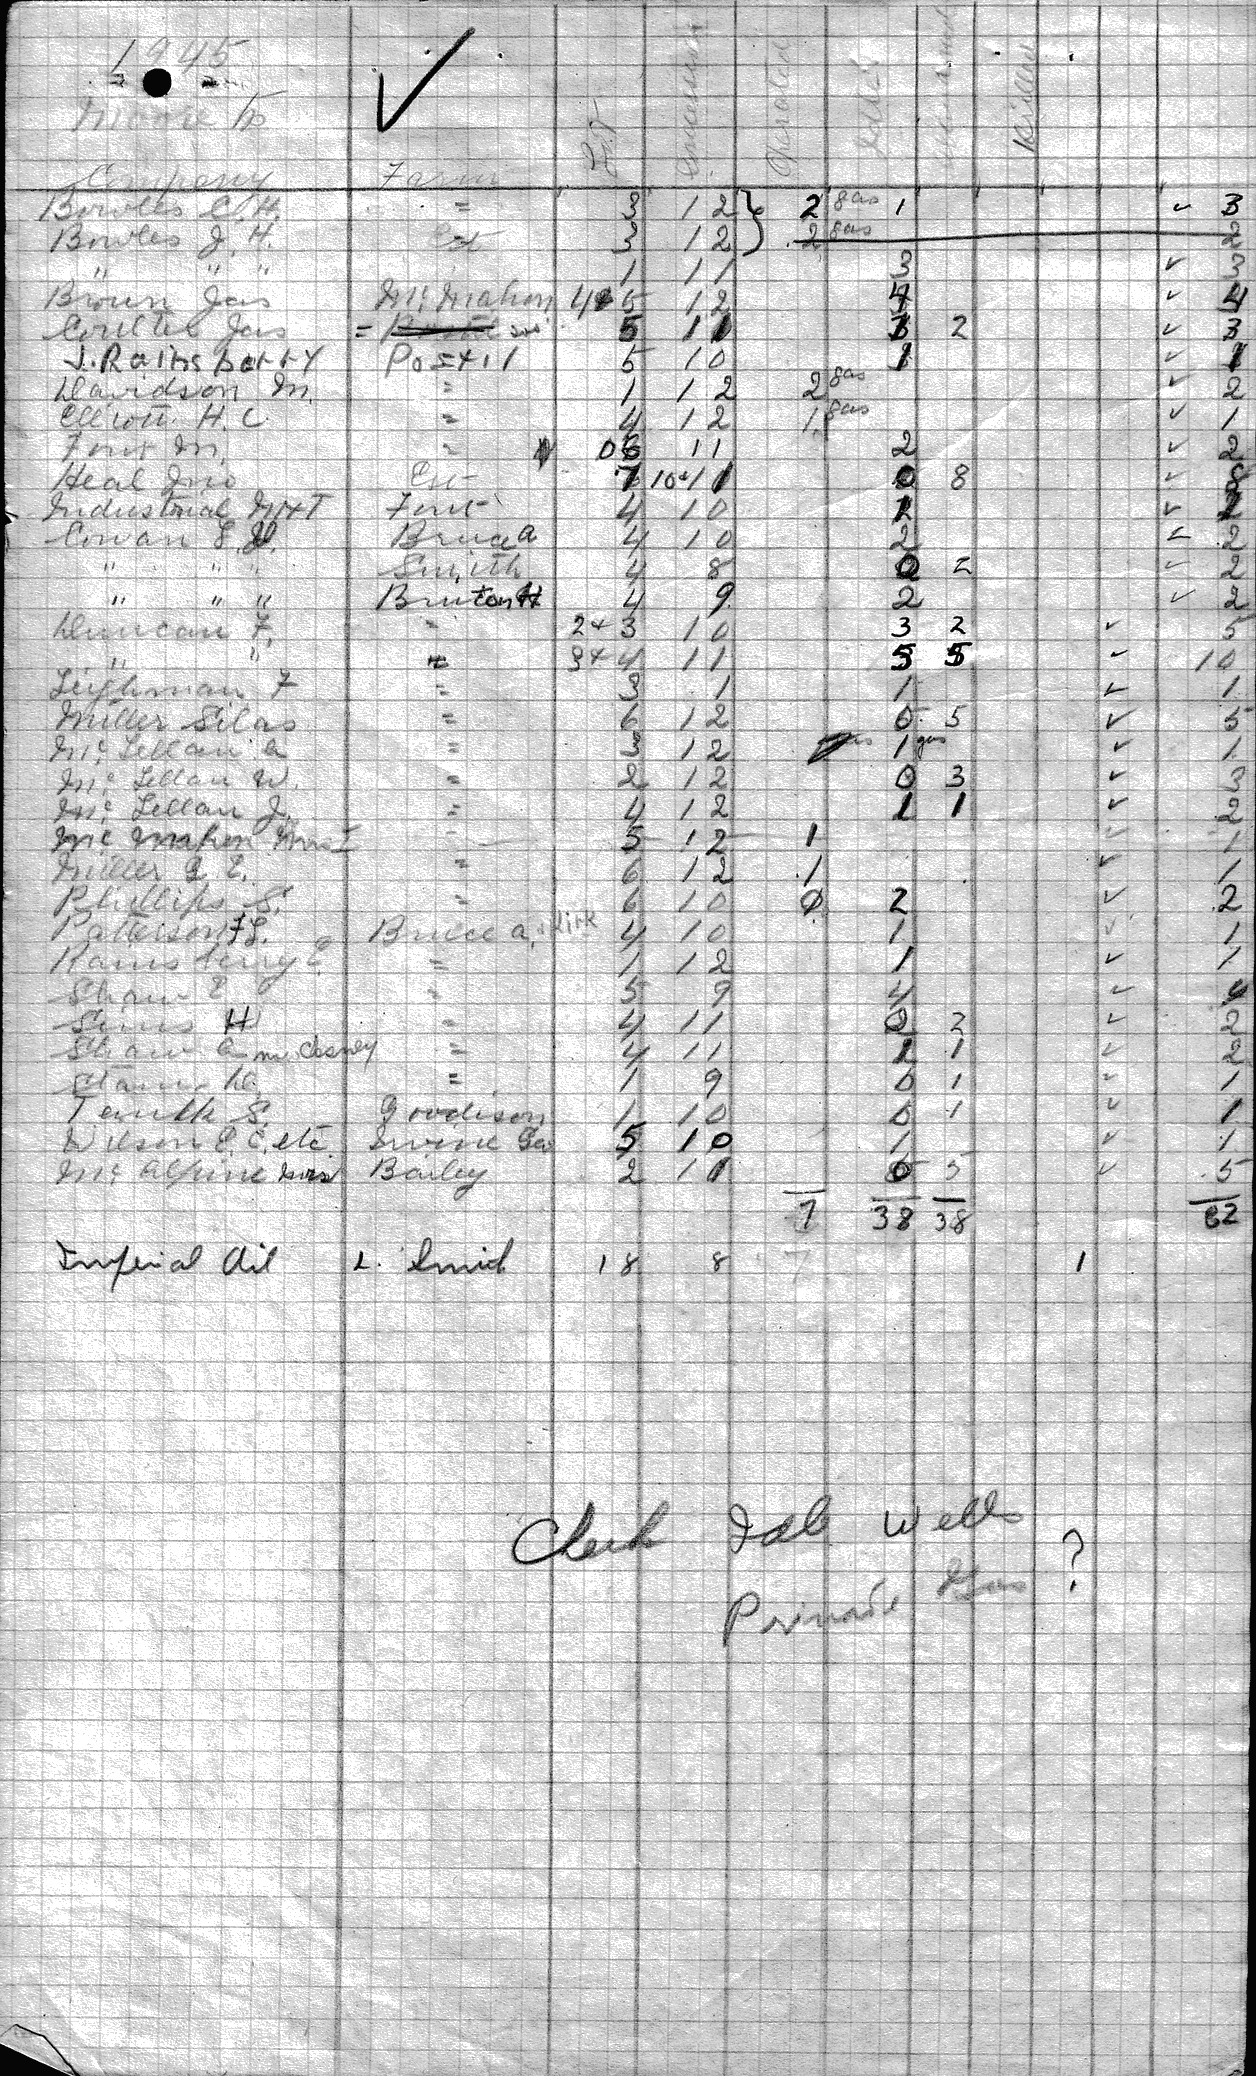 1945
Moore Tp
Company Farm Lot Concession Operated Idle Abandoned Drilled
Bowles C. H. " 3 12 2 gas 1 ✓ 3
Bowles J. H. Est 3 12 2 gas 2
" " " 1 11 3 ✓ 3
Brown Jas McMahon 4+5 12 4 ✓ 4
Coulter Jas = 5 11 1 2 ✓ 3
J. Rainsberry Postill 5 10 1 ✓ 1
Davidson M. " 1 12 2 gas ✓ 2
Elliott H. C. " 4 12 1 gas ✓ 1
Font M. " 6 11 2 ✓ 2
Heal Jno Est 7 10+11 0 8 ✓ 8
Industrial Font 4 10 ✓
Cowan S. Bruce a 4 10 2 ✓ 2
" " " Smith 4 8 0 2 ✓ 2
" " " Bruton H 4 9 2 ✓ 2
Duncan F. " 2+3 10 3 2 ✓ 5
" " " 3+4 11 5 5 ✓ 10
Leighman F " 3 1 1 ✓ 1
Miller Silas " 6 12 0 5 ✓ 5
Mc Lellan a " 3 12 1 gas ✓ 1
Mc Lellan W. " 2 12 0 3 ✓ 3
Mc Lellan J. " 4 12 1 1 ✓ 2
Mc Mahon 5 12 1 ✓ 1
Miller G E. " 6 12 1 ✓ 1
Phillips S. " 6 10 0 2 ✓ 2
Patterson F L. Bruce a, Kirk 4 10 1 ✓ 1
Rainsberry E " 1 12 1 ✓ 1
Shaw E " 5 9 4 ✓ 4
Sims H " 4 11 0 2 ✓ 2
Shaw a mc chesney " 4 11 1 1 ✓ 2
" 1 9 0 1 ✓ 1
S. Goodison 1 10 0 1 ✓ 1
Wilson E. C. etc Irvine Geo 5 10 1 ✓ 1
Mc Alpine Bailey 2 11 0 5 ✓ 5
7 38 38 82
Imperial Oil L. Smith 18 8 1
Check Idle Wells
Private Gas ?